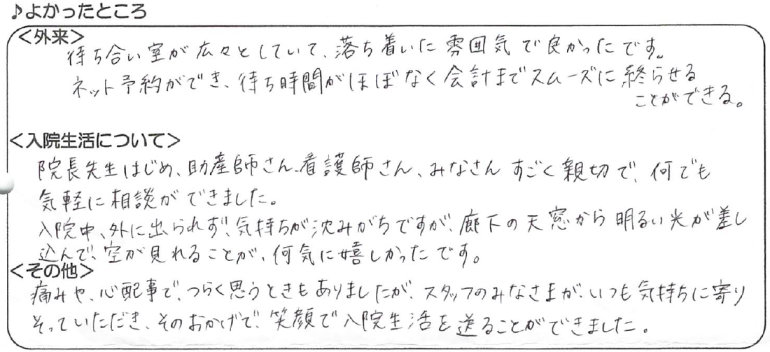 ♪よかったところ
<外来>
待ち合い室が広々としていて、落ち着いた雰囲気で良かったです。
ネット予約ができ、待ち時間がほぼなく会計までスムーズに終らせる
ことができる。
<入院生活について>
院長先生はじめ、助産師さん、看護師さん、みなさんすごく親切で、何でも
気軽に相談ができました。
入院中、外に出られず、気持ちが沈みがちですが、廊下の天窓から明るい光が差し
込んで、空が見れることが、何気に嬉しかったです。
<その他>
痛みや、心配事で、つらく思うときもありましたが、スタッフのみなさまが、いつも気持ちに寄り
そっていただき、そのおかげで、笑顔で入院生活を送ることができました。